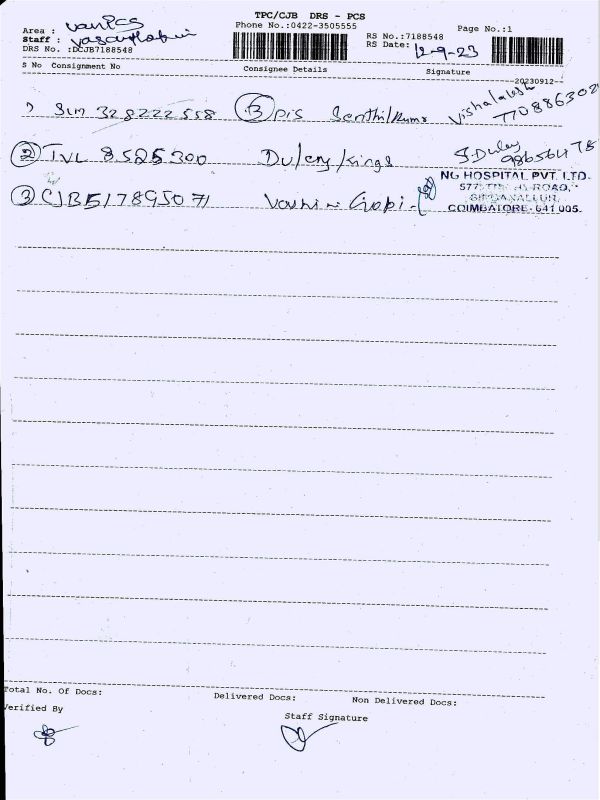 TPC/CJB DRS - PCS
Phone No.:0422-3505555
Page No.:1
Area : van PCS
Staff :
DRS No. :DCJB7188548
RS No.:7188548
RS Date: 12-9-23
S No Consignment No Consignee Details Signature
20230912
1) SLM 328222558 (3) pis Senthilkumar Vishalakshi
(2) TVL 8525300 S. Duley
(3) CJB517895071
NG HOSPITAL PVT. LTD.
577, ROAD,
SINGANALLUR,
COIMBATORE - 641 005.
Total No. Of Docs: Delivered Docs: Non Delivered Docs:
Verified By Staff Signature